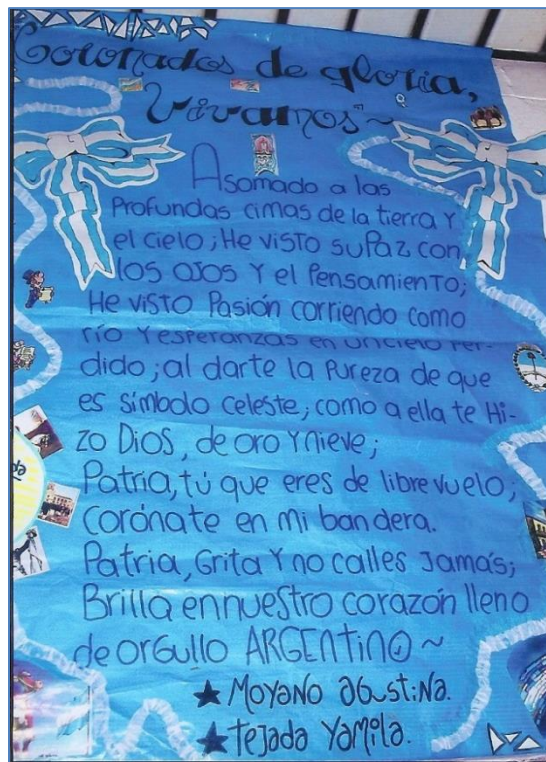 Coronados de gloria,
Vivamos~
Asomado a las
Profundas cimas de la tierra y
el cielo; He visto su Paz con
los ojos y el Pensamiento;
He visto Pasión corriendo como
río y esperanzas en un cielo per-
dido; al darte la Pureza de que
es símbolo celeste; como a ella te Hi-
zo Dios, de oro y nieve;
Patria, tú que eres de libre vuelo;
Corónate en mi bandera.
Patria, Grita Y no calles Jamás;
Brilla en nuestro corazón lleno
de orGullo ARGENtiNO~
★ MoyaNo aGustiNa.
★ tejada YaMila.